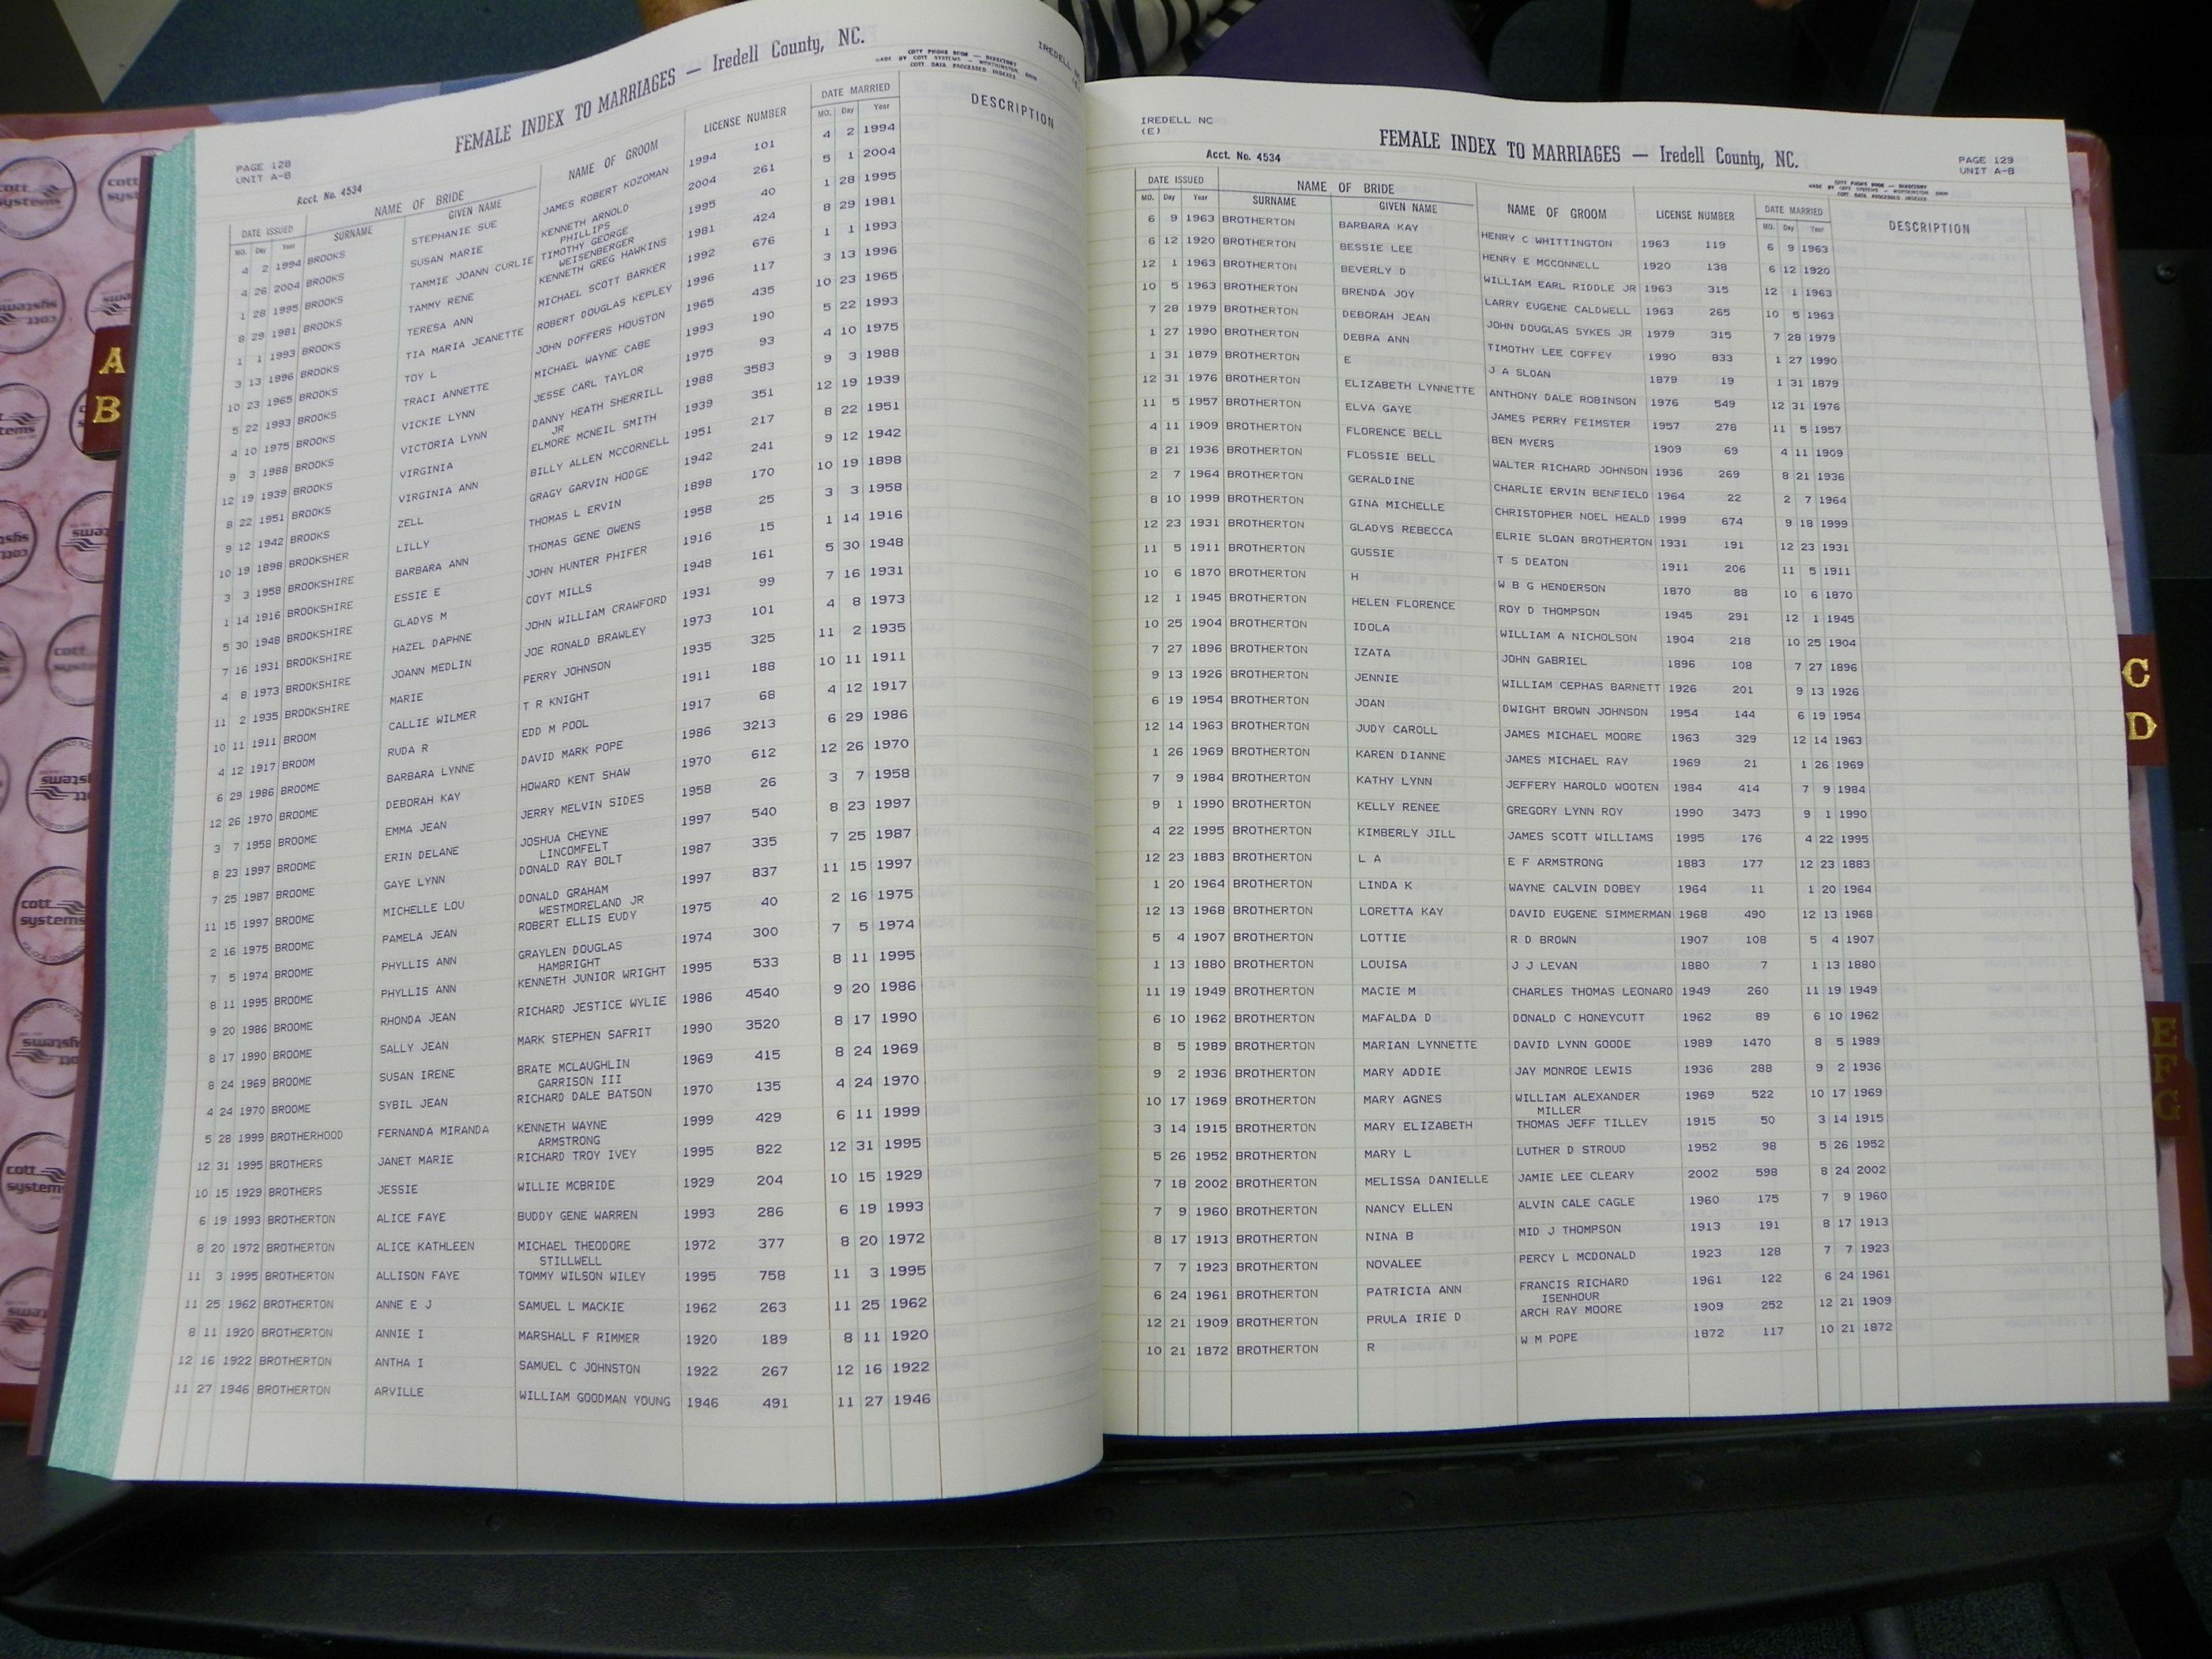 FEMALE INDEX TO MARRIAGES — Iredell County, NC.
COTT PHONE BOOK — DIRECTORY
MADE BY COTT SYSTEMS — WORTHINGTON OHIO
COTT DATA PROCESSED INDEXES
IREDELL NC
PAGE 128
UNIT A-B
Acct. No. 4534
DATE ISSUED NAME OF BRIDE NAME OF GROOM LICENSE NUMBER DATE MARRIED DESCRIPTION
MO. Day Year SURNAME GIVEN NAME MO. Day Year
4 2 1994 BROOKS STEPHANIE SUE JAMES ROBERT KOZOMAN 1994 101 4 2 1994
4 26 2004 BROOKS SUSAN MARIE KENNETH ARNOLD 2004 261 5 1 2004
PHILLIPS
1 28 1995 BROOKS TAMMIE JOANN CURLIE TIMOTHY GEORGE 1995 40 1 28 1995
WEISENBERGER
8 29 1981 BROOKS TAMMY RENE KENNETH GREG HAWKINS 1981 424 8 29 1981
1 1 1993 BROOKS TERESA ANN MICHAEL SCOTT BARKER 1992 676 1 1 1993
3 13 1996 BROOKS TIA MARIA JEANETTE ROBERT DOUGLAS KEPLEY 1996 117 3 13 1996
10 23 1965 BROOKS TOY L JOHN DOFFERS HOUSTON 1965 435 10 23 1965
5 22 1993 BROOKS TRACI ANNETTE MICHAEL WAYNE CABE 1993 190 5 22 1993
4 10 1975 BROOKS VICKIE LYNN JESSE CARL TAYLOR 1975 93 4 10 1975
9 3 1988 BROOKS VICTORIA LYNN DANNY HEATH SHERRILL 1988 3583 9 3 1988
JR
12 19 1939 BROOKS VIRGINIA ELMORE MCNEIL SMITH 1939 351 12 19 1939
8 22 1951 BROOKS VIRGINIA ANN BILLY ALLEN MCCORNELL 1951 217 8 22 1951
9 12 1942 BROOKS ZELL GRAGY GARVIN HODGE 1942 241 9 12 1942
10 19 1898 BROOKSHER LILLY THOMAS L ERVIN 1898 170 10 19 1898
3 3 1958 BROOKSHIRE BARBARA ANN THOMAS GENE OWENS 1958 25 3 3 1958
1 14 1916 BROOKSHIRE ESSIE E JOHN HUNTER PHIFER 1916 15 1 14 1916
5 30 1948 BROOKSHIRE GLADYS M COYT MILLS 1948 161 5 30 1948
7 16 1931 BROOKSHIRE HAZEL DAPHNE JOHN WILLIAM CRAWFORD 1931 99 7 16 1931
4 8 1973 BROOKSHIRE JOANN MEDLIN JOE RONALD BRAWLEY 1973 101 4 8 1973
11 2 1935 BROOKSHIRE MARIE PERRY JOHNSON 1935 325 11 2 1935
10 11 1911 BROOM CALLIE WILMER T R KNIGHT 1911 188 10 11 1911
4 12 1917 BROOM RUDA R EDD M POOL 1917 68 4 12 1917
6 29 1986 BROOME BARBARA LYNNE DAVID MARK POPE 1986 3213 6 29 1986
12 26 1970 BROOME DEBORAH KAY HOWARD KENT SHAW 1970 612 12 26 1970
3 7 1958 BROOME EMMA JEAN JERRY MELVIN SIDES 1958 26 3 7 1958
8 23 1997 BROOME ERIN DELANE JOSHUA CHEYNE 1997 540 8 23 1997
LINCOMFELT
7 25 1987 BROOME GAYE LYNN DONALD RAY BOLT 1987 335 7 25 1987
11 15 1997 BROOME MICHELLE LOU DONALD GRAHAM 1997 837 11 15 1997
WESTMORELAND JR
2 16 1975 BROOME PAMELA JEAN ROBERT ELLIS EUDY 1975 40 2 16 1975
7 5 1974 BROOME PHYLLIS ANN GRAYLEN DOUGLAS 1974 300 7 5 1974
HAMBRIGHT
8 11 1995 BROOME PHYLLIS ANN KENNETH JUNIOR WRIGHT 1995 533 8 11 1995
9 20 1986 BROOME RHONDA JEAN RICHARD JESTICE WYLIE 1986 4540 9 20 1986
8 17 1990 BROOME SALLY JEAN MARK STEPHEN SAFRIT 1990 3520 8 17 1990
8 24 1969 BROOME SUSAN IRENE BRATE MCLAUGHLIN 1969 415 8 24 1969
GARRISON III
4 24 1970 BROOME SYBIL JEAN RICHARD DALE BATSON 1970 135 4 24 1970
5 28 1999 BROTHERHOOD FERNANDA MIRANDA KENNETH WAYNE 1999 429 6 11 1999
ARMSTRONG
12 31 1995 BROTHERS JANET MARIE RICHARD TROY IVEY 1995 822 12 31 1995
10 15 1929 BROTHERS JESSIE WILLIE MCBRIDE 1929 204 10 15 1929
6 19 1993 BROTHERTON ALICE FAYE BUDDY GENE WARREN 1993 286 6 19 1993
8 20 1972 BROTHERTON ALICE KATHLEEN MICHAEL THEODORE 1972 377 8 20 1972
STILLWELL
11 3 1995 BROTHERTON ALLISON FAYE TOMMY WILSON WILEY 1995 758 11 3 1995
11 25 1962 BROTHERTON ANNE E J SAMUEL L MACKIE 1962 263 11 25 1962
8 11 1920 BROTHERTON ANNIE I MARSHALL F RIMMER 1920 189 8 11 1920
12 16 1922 BROTHERTON ANTHA I SAMUEL C JOHNSTON 1922 267 12 16 1922
11 27 1946 BROTHERTON ARVILLE WILLIAM GOODMAN YOUNG 1946 491 11 27 1946
IREDELL NC
(E)
FEMALE INDEX TO MARRIAGES — Iredell County, NC.
Acct. No. 4534
PAGE 129
UNIT A-B
COTT PHONE BOOK — DIRECTORY
MADE BY COTT SYSTEMS — WORTHINGTON OHIO
COTT DATA PROCESSED INDEXES
DATE ISSUED NAME OF BRIDE NAME OF GROOM LICENSE NUMBER DATE MARRIED DESCRIPTION
MO. Day Year SURNAME GIVEN NAME Mo. Day Year
6 9 1963 BROTHERTON BARBARA KAY HENRY C WHITTINGTON 1963 119 6 9 1963
6 12 1920 BROTHERTON BESSIE LEE HENRY E MCCONNELL 1920 138 6 12 1920
12 1 1963 BROTHERTON BEVERLY D WILLIAM EARL RIDDLE JR 1963 315 12 1 1963
10 5 1963 BROTHERTON BRENDA JOY LARRY EUGENE CALDWELL 1963 265 10 5 1963
7 28 1979 BROTHERTON DEBORAH JEAN JOHN DOUGLAS SYKES JR 1979 315 7 28 1979
1 27 1990 BROTHERTON DEBRA ANN TIMOTHY LEE COFFEY 1990 833 1 27 1990
1 31 1879 BROTHERTON E J A SLOAN 1879 19 1 31 1879
12 31 1976 BROTHERTON ELIZABETH LYNNETTE ANTHONY DALE ROBINSON 1976 549 12 31 1976
11 5 1957 BROTHERTON ELVA GAYE JAMES PERRY FEIMSTER 1957 278 11 5 1957
4 11 1909 BROTHERTON FLORENCE BELL BEN MYERS 1909 69 4 11 1909
8 21 1936 BROTHERTON FLOSSIE BELL WALTER RICHARD JOHNSON 1936 269 8 21 1936
2 7 1964 BROTHERTON GERALDINE CHARLIE ERVIN BENFIELD 1964 22 2 7 1964
8 10 1999 BROTHERTON GINA MICHELLE CHRISTOPHER NOEL HEALD 1999 674 9 18 1999
12 23 1931 BROTHERTON GLADYS REBECCA ELRIE SLOAN BROTHERTON 1931 191 12 23 1931
11 5 1911 BROTHERTON GUSSIE T S DEATON 1911 206 11 5 1911
10 6 1870 BROTHERTON H W B G HENDERSON 1870 88 10 6 1870
12 1 1945 BROTHERTON HELEN FLORENCE ROY D THOMPSON 1945 291 12 1 1945
10 25 1904 BROTHERTON IDOLA WILLIAM A NICHOLSON 1904 218 10 25 1904
7 27 1896 BROTHERTON IZATA JOHN GABRIEL 1896 108 7 27 1896
9 13 1926 BROTHERTON JENNIE WILLIAM CEPHAS BARNETT 1926 201 9 13 1926
6 19 1954 BROTHERTON JOAN DWIGHT BROWN JOHNSON 1954 144 6 19 1954
12 14 1963 BROTHERTON JUDY CAROLL JAMES MICHAEL MOORE 1963 329 12 14 1963
1 26 1969 BROTHERTON KAREN DIANNE JAMES MICHAEL RAY 1969 21 1 26 1969
7 9 1984 BROTHERTON KATHY LYNN JEFFERY HAROLD WOOTEN 1984 414 7 9 1984
9 1 1990 BROTHERTON KELLY RENEE GREGORY LYNN ROY 1990 3473 9 1 1990
4 22 1995 BROTHERTON KIMBERLY JILL JAMES SCOTT WILLIAMS 1995 176 4 22 1995
12 23 1883 BROTHERTON L A E F ARMSTRONG 1883 177 12 23 1883
1 20 1964 BROTHERTON LINDA K WAYNE CALVIN DOBEY 1964 11 1 20 1964
12 13 1968 BROTHERTON LORETTA KAY DAVID EUGENE SIMMERMAN 1968 490 12 13 1968
5 4 1907 BROTHERTON LOTTIE R D BROWN 1907 108 5 4 1907
1 13 1880 BROTHERTON LOUISA J J LEVAN 1880 7 1 13 1880
11 19 1949 BROTHERTON MACIE M CHARLES THOMAS LEONARD 1949 260 11 19 1949
6 10 1962 BROTHERTON MAFALDA D DONALD C HONEYCUTT 1962 89 6 10 1962
8 5 1989 BROTHERTON MARIAN LYNNETTE DAVID LYNN GOODE 1989 1470 8 5 1989
9 2 1936 BROTHERTON MARY ADDIE JAY MONROE LEWIS 1936 288 9 2 1936
10 17 1969 BROTHERTON MARY AGNES WILLIAM ALEXANDER 1969 522 10 17 1969
MILLER
3 14 1915 BROTHERTON MARY ELIZABETH THOMAS JEFF TILLEY 1915 50 3 14 1915
5 26 1952 BROTHERTON MARY L LUTHER D STROUD 1952 98 5 26 1952
7 18 2002 BROTHERTON MELISSA DANIELLE JAMIE LEE CLEARY 2002 598 8 24 2002
7 9 1960 BROTHERTON NANCY ELLEN ALVIN CALE CAGLE 1960 175 7 9 1960
8 17 1913 BROTHERTON NINA B MID J THOMPSON 1913 191 8 17 1913
7 7 1923 BROTHERTON NOVALEE PERCY L MCDONALD 1923 128 7 7 1923
6 24 1961 BROTHERTON PATRICIA ANN FRANCIS RICHARD 1961 122 6 24 1961
ISENHOUR
12 21 1909 BROTHERTON PRULA IRIE D ARCH RAY MOORE 1909 252 12 21 1909
10 21 1872 BROTHERTON R W M POPE 1872 117 10 21 1872
A
B
C
D
E
F
G
cott
systems